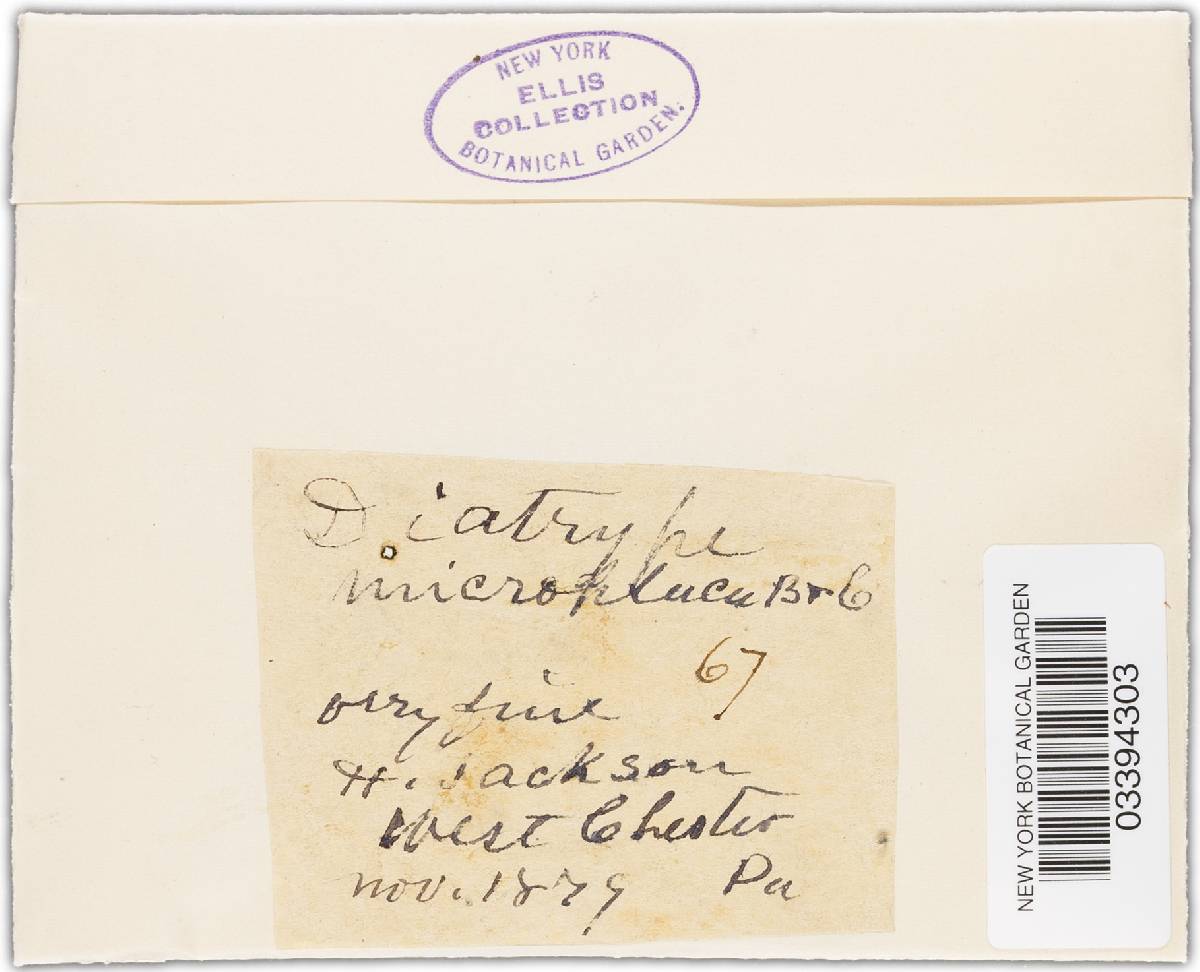 NEW YORK
ELLIS
COLLECTION
BOTANICAL GARDEN.
Diatrype
microplaca B & C
67
very fine
H. Jackson
West Chester
Nov. 1879 Pa
NEW YORK BOTANICAL GARDEN
03394303